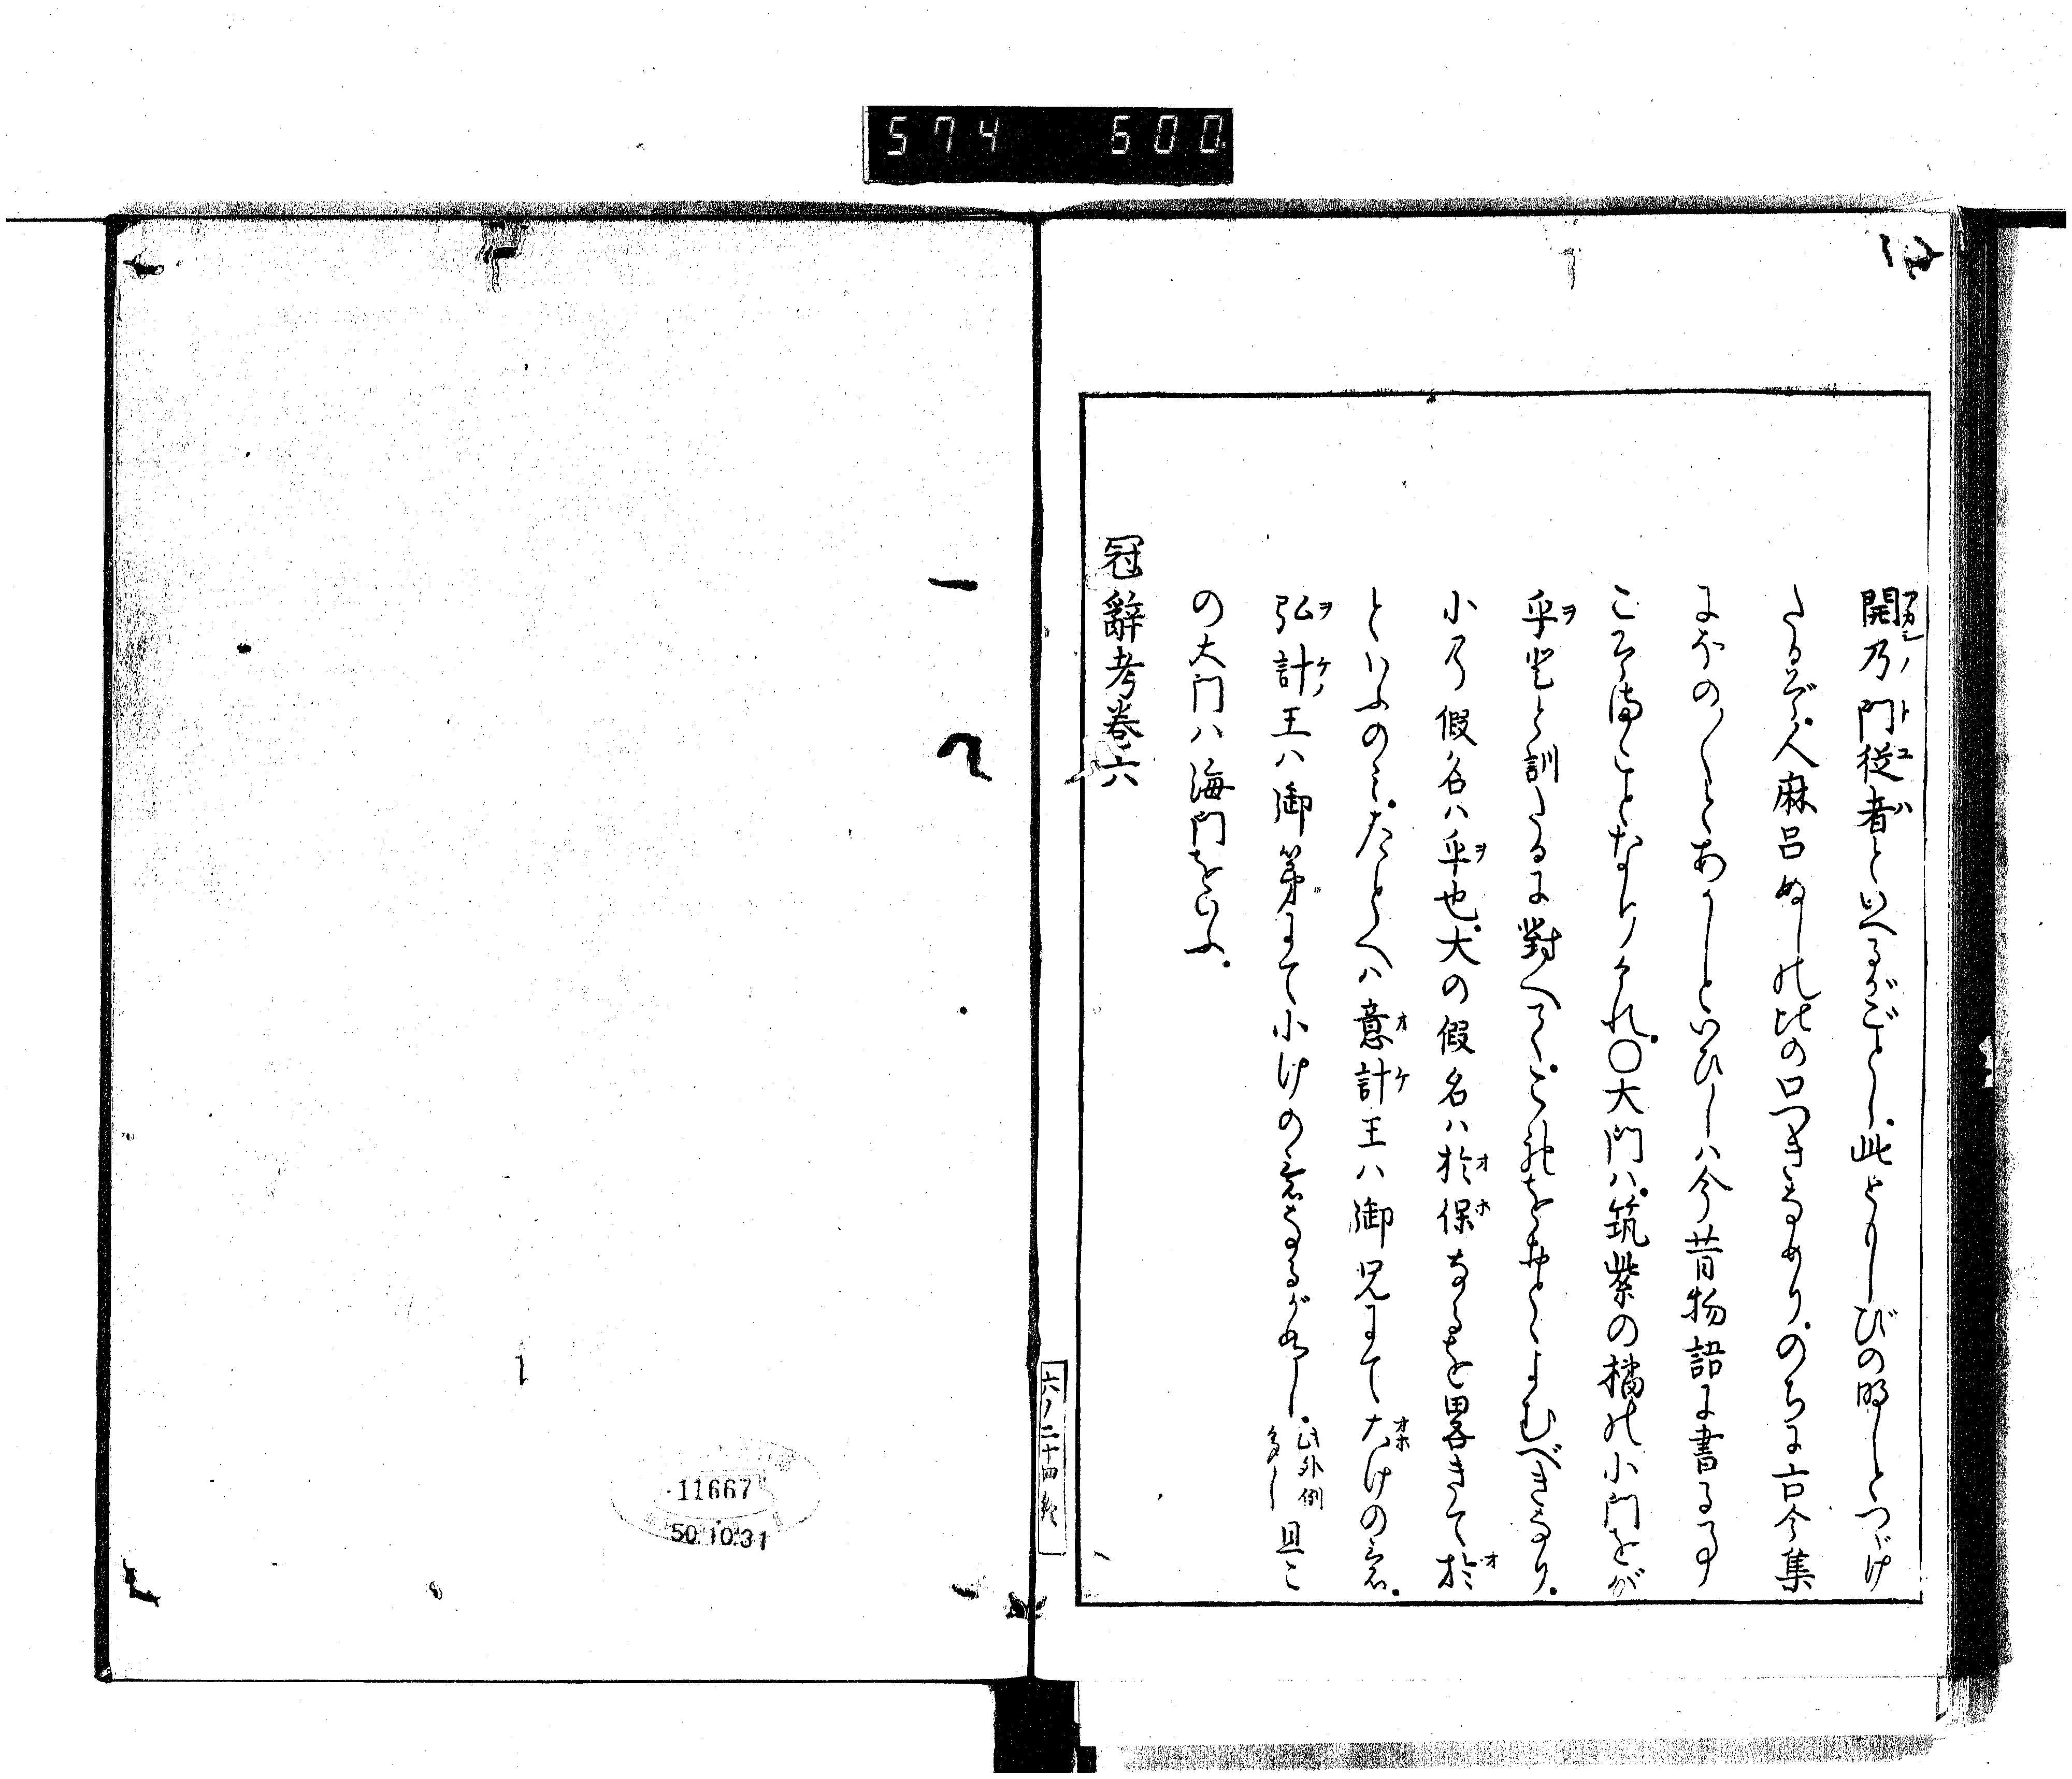 574 600
開乃門従者といへるがごとし。此ともしびの明しとつゞけ
たるぞ、人麻呂ぬしの比の口つきなめり。のちに古今集
にほの〴〵とあかしといひしは今昔物語に書る
ころほひのことなりけれ。〇大門は、筑紫の橘の小門をが
乎登と訓たるに對へて、これをおとゝよむべきなり。
小乃假名ハ乎也。大の假名ハ於保なるを畧きて於
といふのみ。たとへハ意計王ハ御兄にて大けの意。
弘計王ハ御弟にて小けの意なるが如し。此外例多し 且こ
の大門ハ海門をいふ。
冠辭考巻六
六ノ二十四終
11667
50.10.31